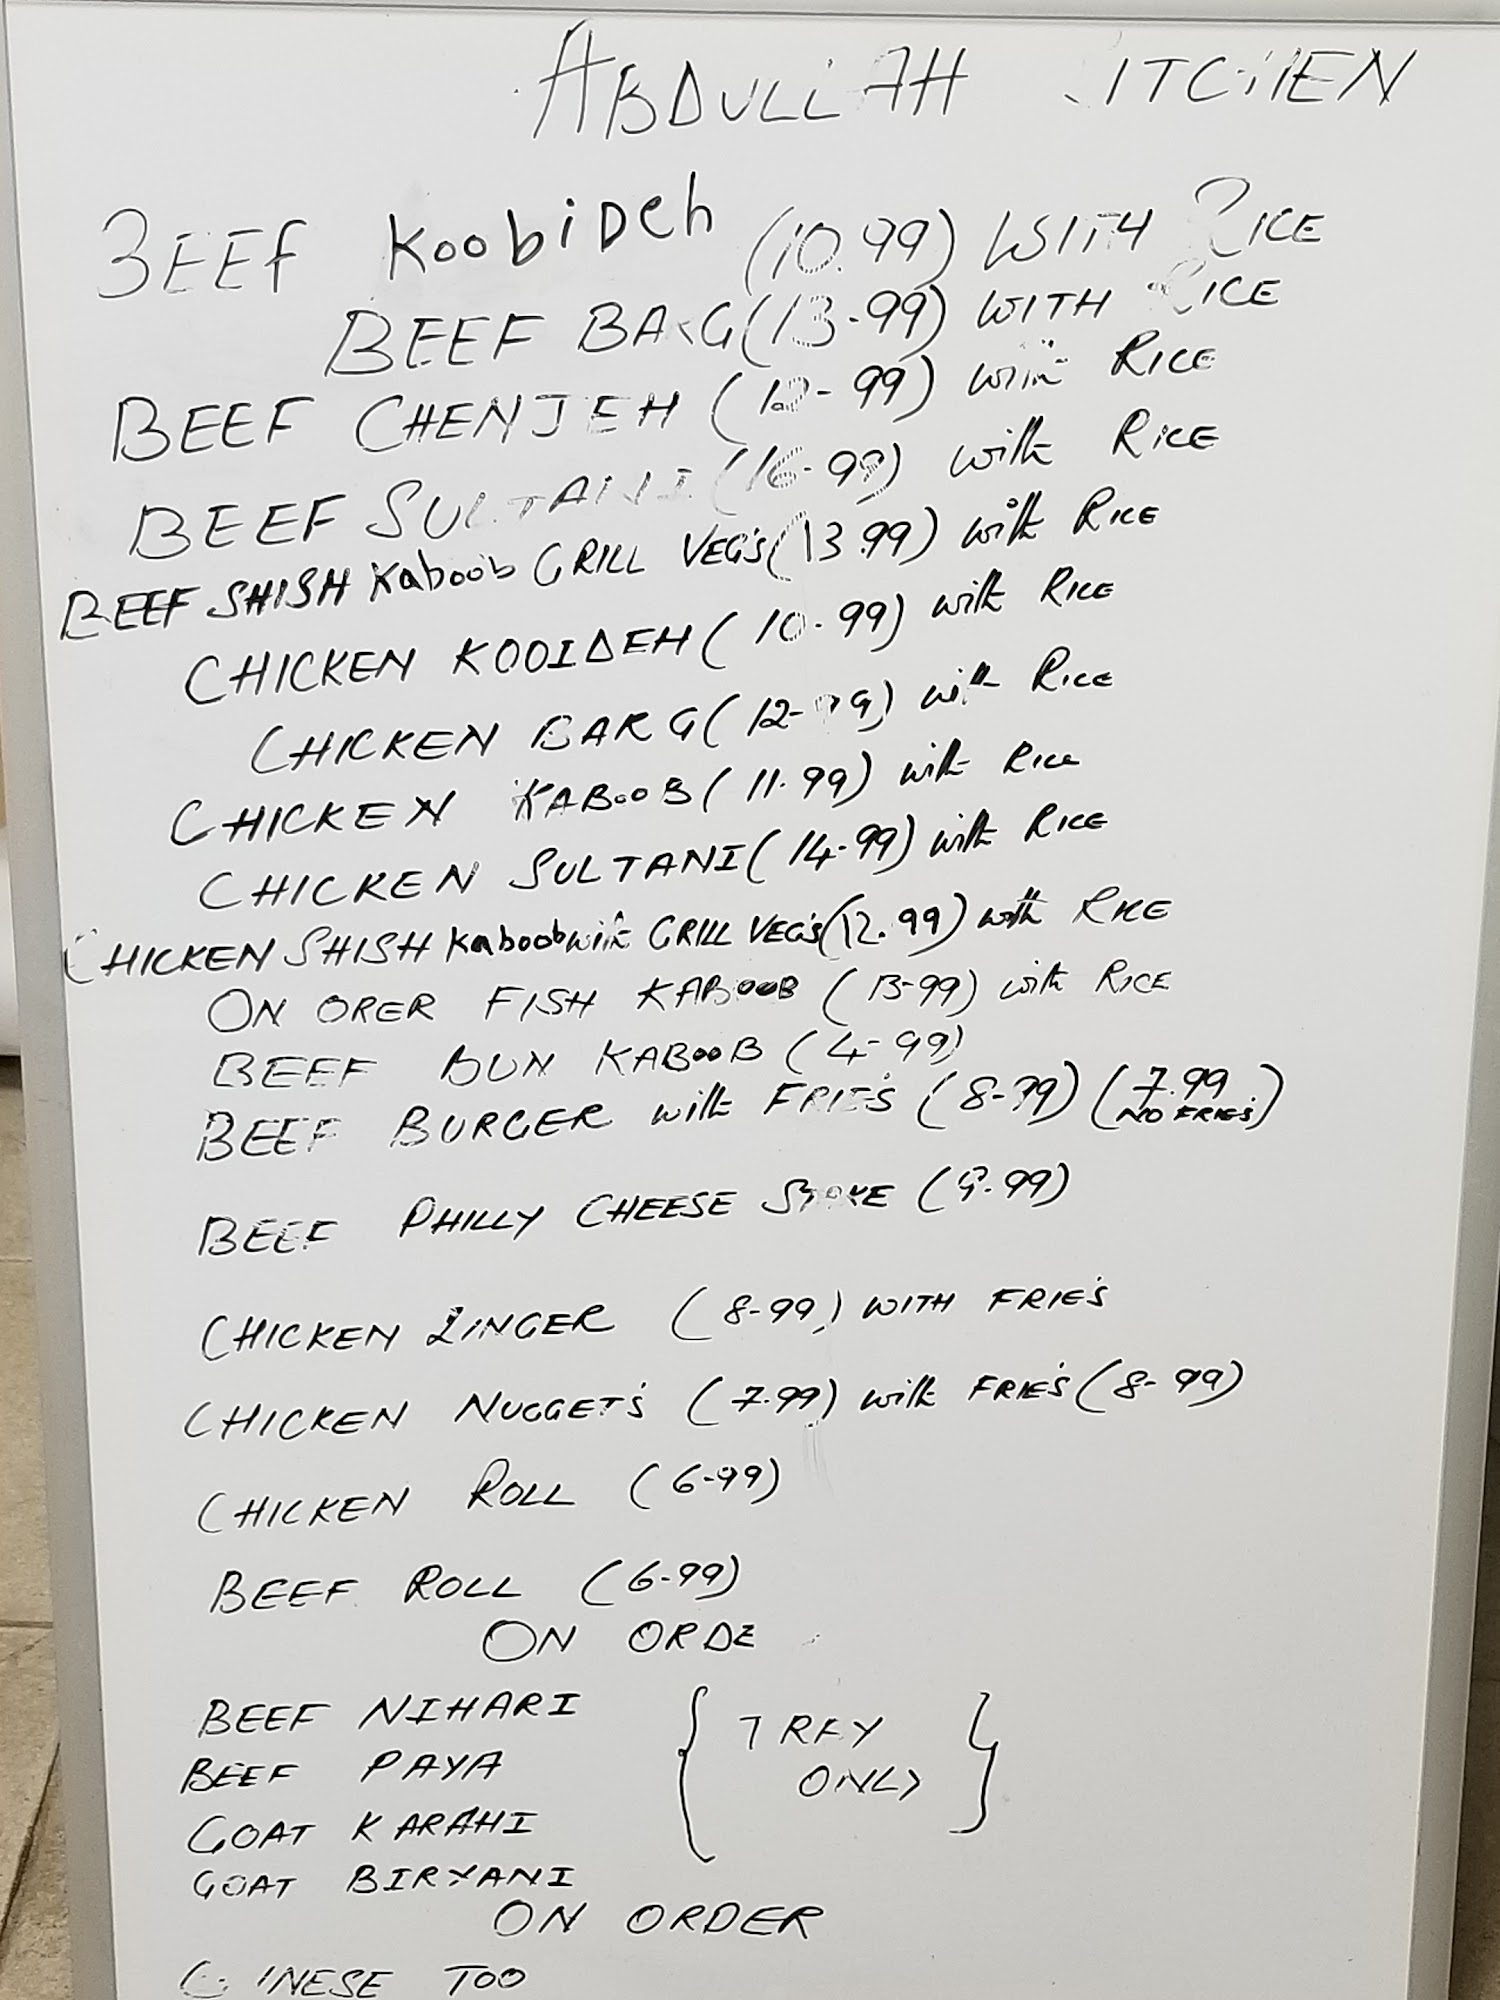 ABDULLAH KITCHEN
BEEF KoobiDeh (10.99) WITH RICE
BEEF BARG (13-99) WITH RICE
BEEF CHENJEH (12-99) with RICE
BEEF SULTANI (16-99) with RICE
BEEF SHISH Kaboob GRILL VEG'S (13.99) with RICE
CHICKEN KOOIDEH (10-99) with RICE
CHICKEN BARG (12-99) with RICE
CHICKEN KABOOB (11.99) with RICE
CHICKEN SULTANI (14-99) with RICE
CHICKEN SHISH Kaboob with GRILL VEG'S (12.99) with RICE
ON ORER FISH KABOOB (13-99) with RICE
BEEF BUN KABOOB (4-99)
BEEF BURGER with FRIE'S (8-99) (7.99 NO FRIE'S)
BEEF PHILLY CHEESE (9.99)
CHICKEN ZINGER (8-99) WITH FRIE'S
CHICKEN NUGGET'S (7.99) with FRIE'S (8-99)
CHICKEN ROLL (6-99)
BEEF ROLL (6-99)
ON ORDE
BEEF NIHARI
BEEF PAYA
GOAT KARAHI
GOAT BIRYANI
{TREY
ONLY}
ON ORDER
CHINESE TOO